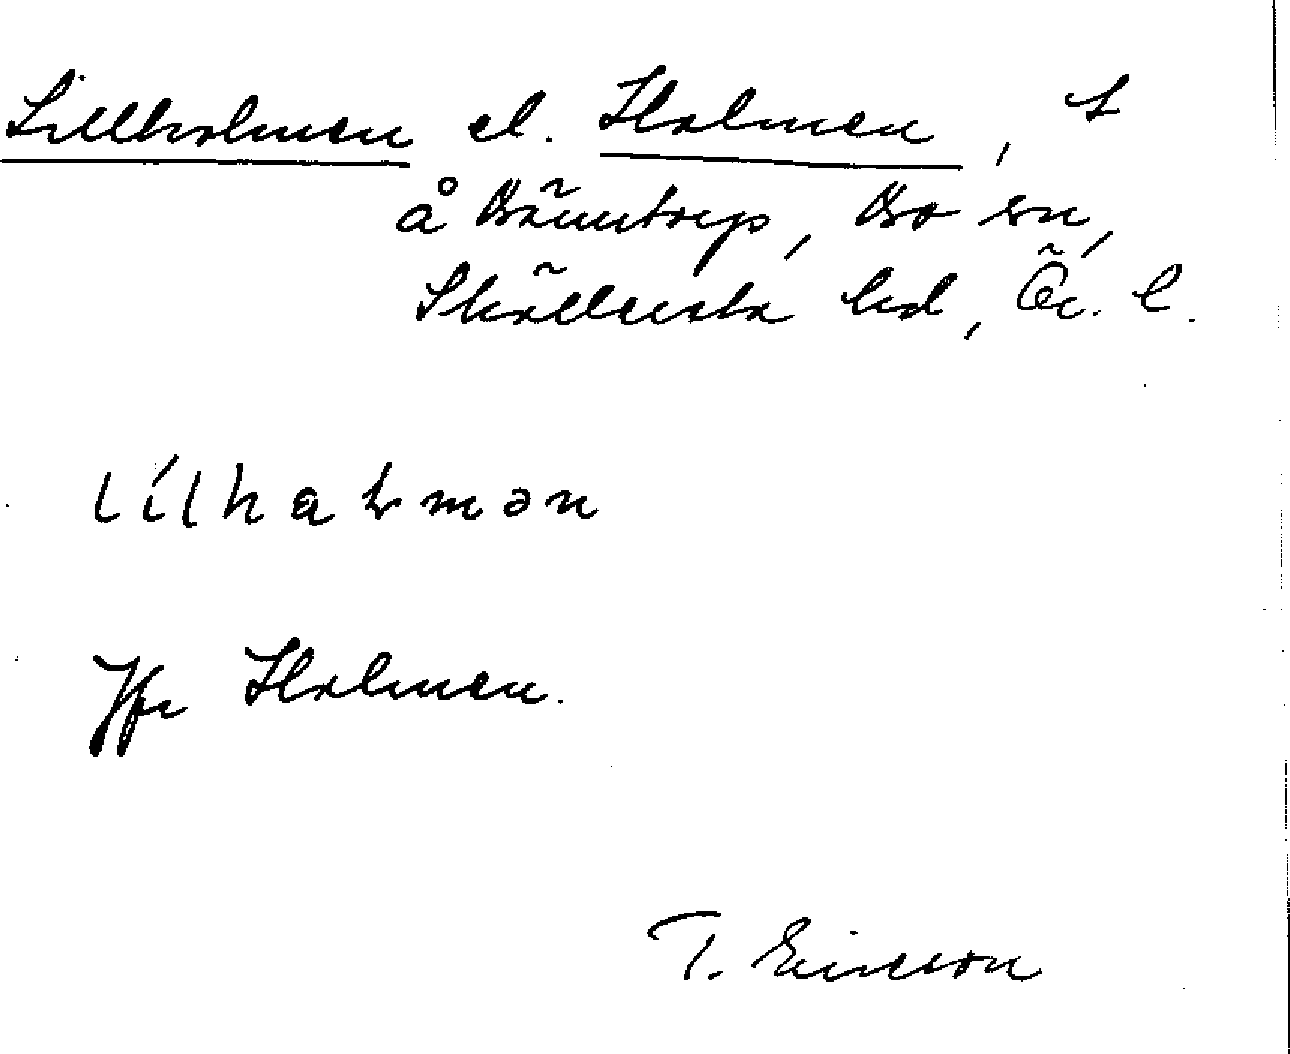 Lillholmen el. Holmen, t
å Bränntorp, Bo sn,
Skällersta hd, Ör. l.
lílhaɫmən
Jfr Holmen.
T. Ericsson